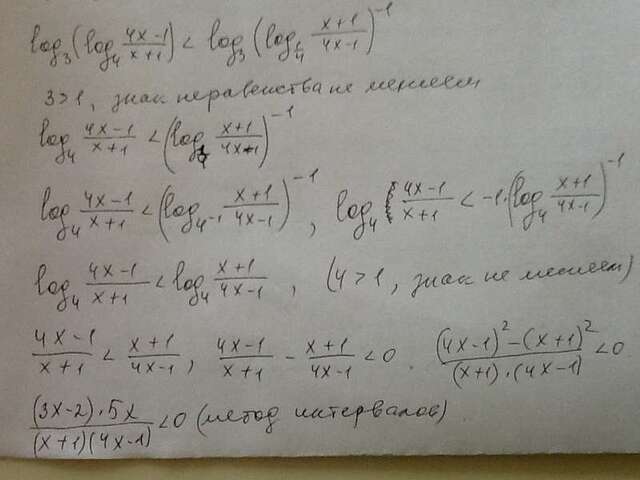 log₃(log₄ (4x-1)/(x+1)) < log₃(log_{1/4} (x+1)/(4x-1))⁻¹
3>1, знак неравенства не меняем
log₄ (4x-1)/(x+1) < (log_{1/4} (x+1)/(4x-1))⁻¹
log₄ (4x-1)/(x+1) < (log_{4⁻¹} (x+1)/(4x-1))⁻¹, log₄ (4x-1)/(x+1) < -1·(log₄ (x+1)/(4x-1))⁻¹
log₄ (4x-1)/(x+1) < log₄ (x+1)/(4x-1), (4>1, знак не меняем)
(4x-1)/(x+1) < (x+1)/(4x-1), (4x-1)/(x+1) - (x+1)/(4x-1) < 0. ((4x-1)²-(x+1)²)/((x+1)·(4x-1)) < 0
((3x-2)·5x)/((x+1)(4x-1)) < 0 (метод интервалов)